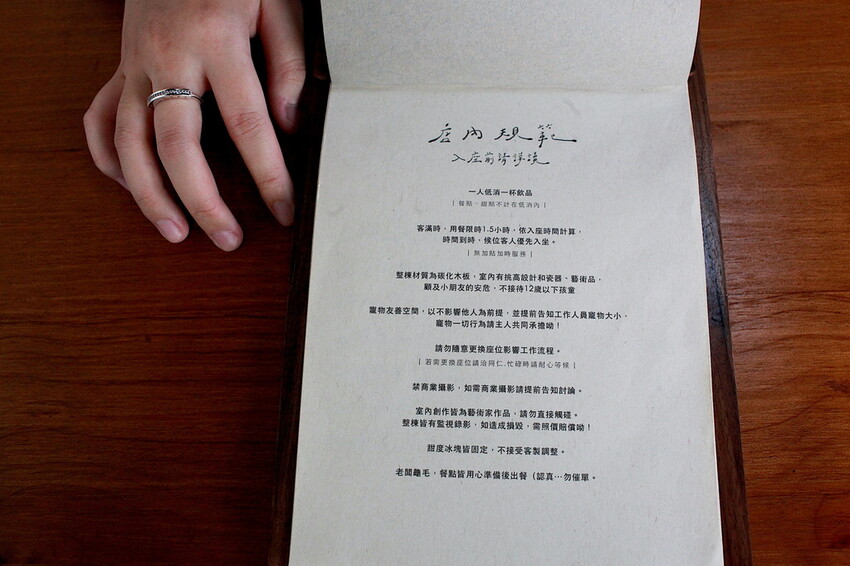 店內規範
入座前請詳讀
一人低消一杯飲品
| 餐點、甜點不計在低消內 |
客滿時，用餐限時1.5小時，依入座時間計算，
時間到時，候位客人優先入坐。
| 無加點加時服務 |
整棟材質為碳化木板，室內有挑高設計和瓷器、藝術品，
顧及小朋友的安危，不接待12歲以下孩童
寵物友善空間，以不影響他人為前提，並提前告知工作人員寵物大小，
寵物一切行為請主人共同承擔呦！
請勿隨意更換座位影響工作流程。
| 若需更換座位請洽同仁,忙碌時請耐心等候 |
禁商業攝影，如需商業攝影請提前告知討論。
室內創作皆為藝術家作品，請勿直接觸碰。
整棟皆有監視錄影，如造成損毀，需照價賠償呦！
甜度冰塊皆固定，不接受客製調整。
老闆龜毛，餐點皆用心準備後出餐（認真…勿催單。